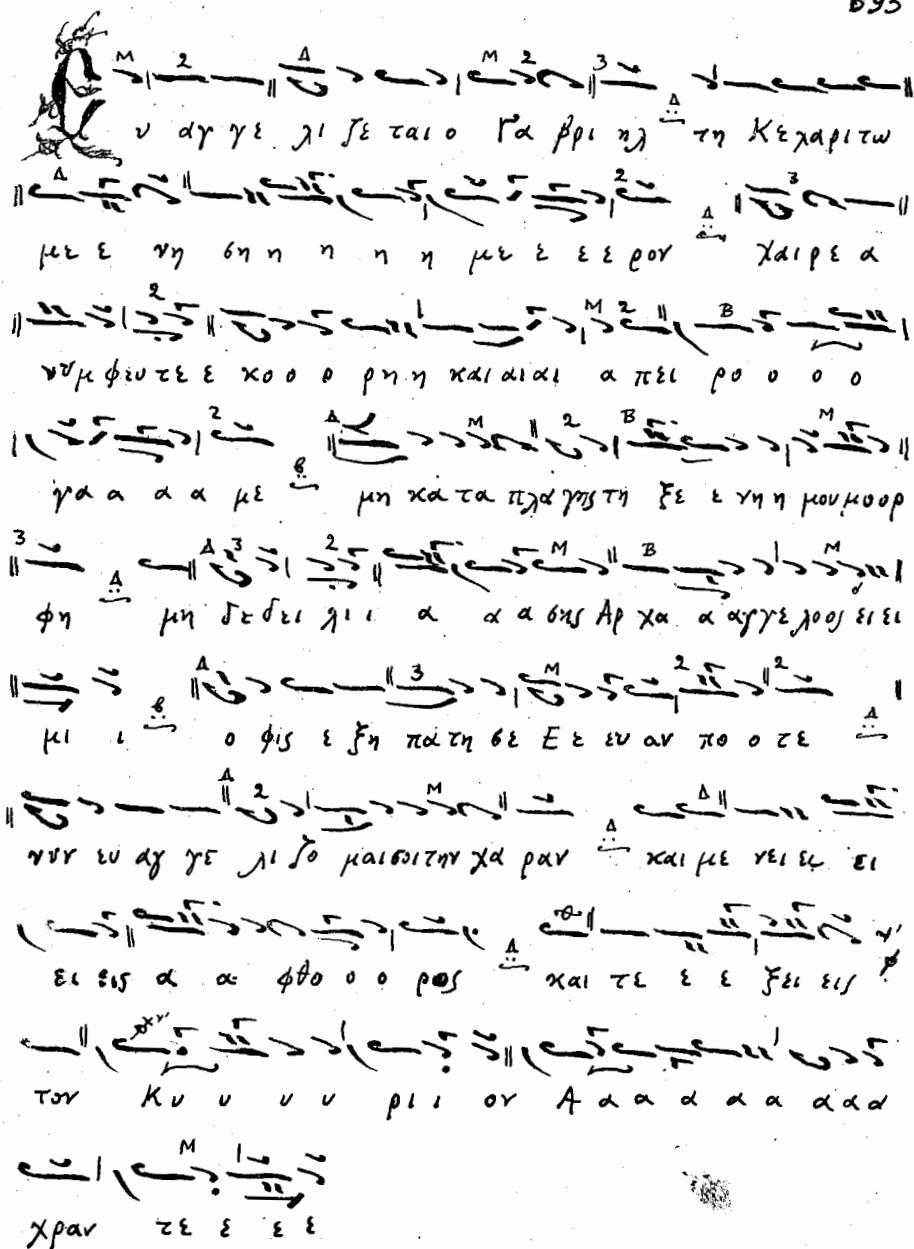 593
Ευ αγ γε λι ζε ται ο Γα βρι ηλ τη Κε χα ρι τω
με ε νη ση η η η με ε ε ε ρον χαι ρε α
νυμ φευ τε ε κο ο ο ρη η και αι αι α πει ρο ο ο ο
γα α α α με μη κα τα πλα γης τη ξε ε νη η μου μο ορ
φη μη δε δει λι ι α α α σης Αρ χα α αγ γε λο ος ει ει
μι ι ο φις ε ξη πα τη σε Ε ε ευ αν πο ο τε
νυν ευ αγ γε λι ζο μαι σοι την χα ραν και με νει εις ει
ει εις α α φθο ο ο ρος και τε ε ε ξει εις
τον Κυ υ υ υ ρι ι ον Α α α α α α α α
χραν τε ε ε ε